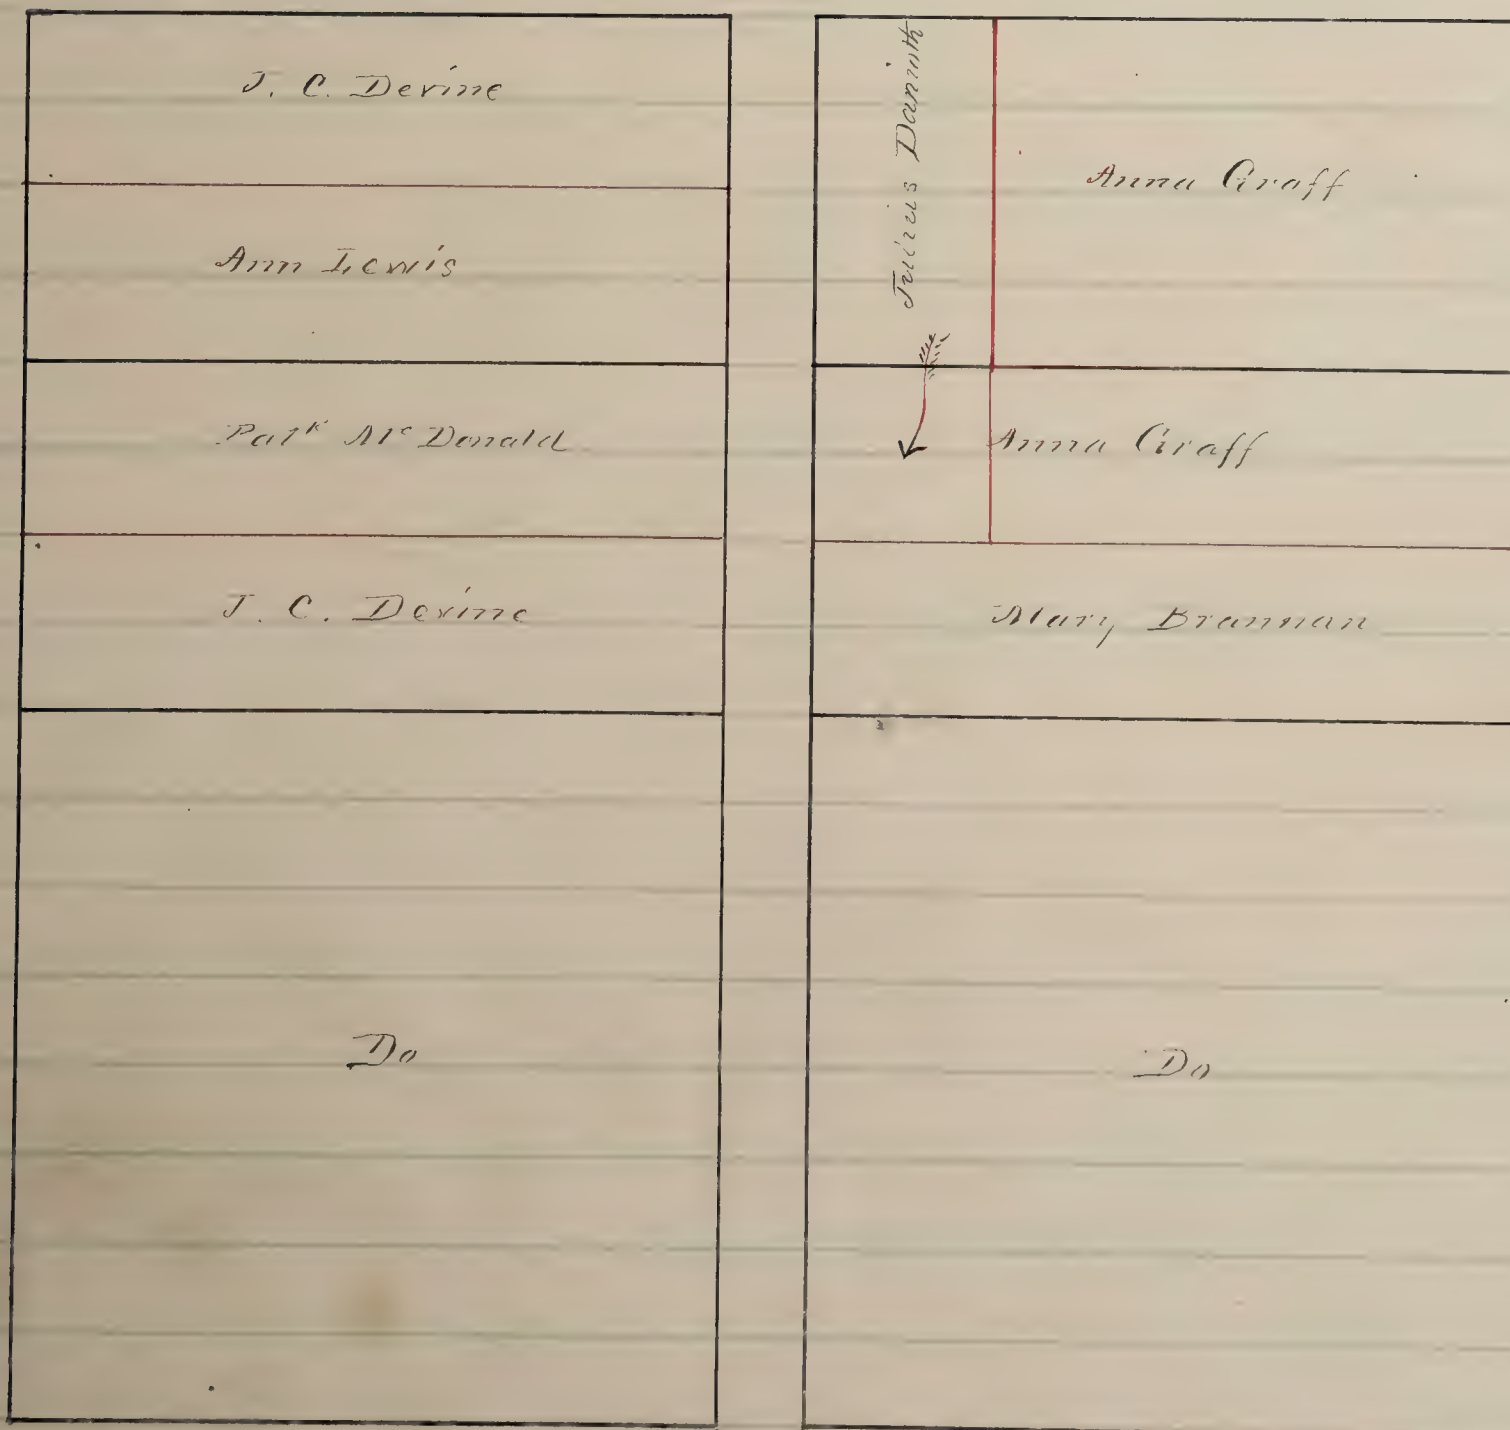 J. C. Devine
Ann Lewis
Patk Mc Donald
J. C. Devine
Do
Julius
Anna Graff
Anna Graff
Mary Brannan
Do